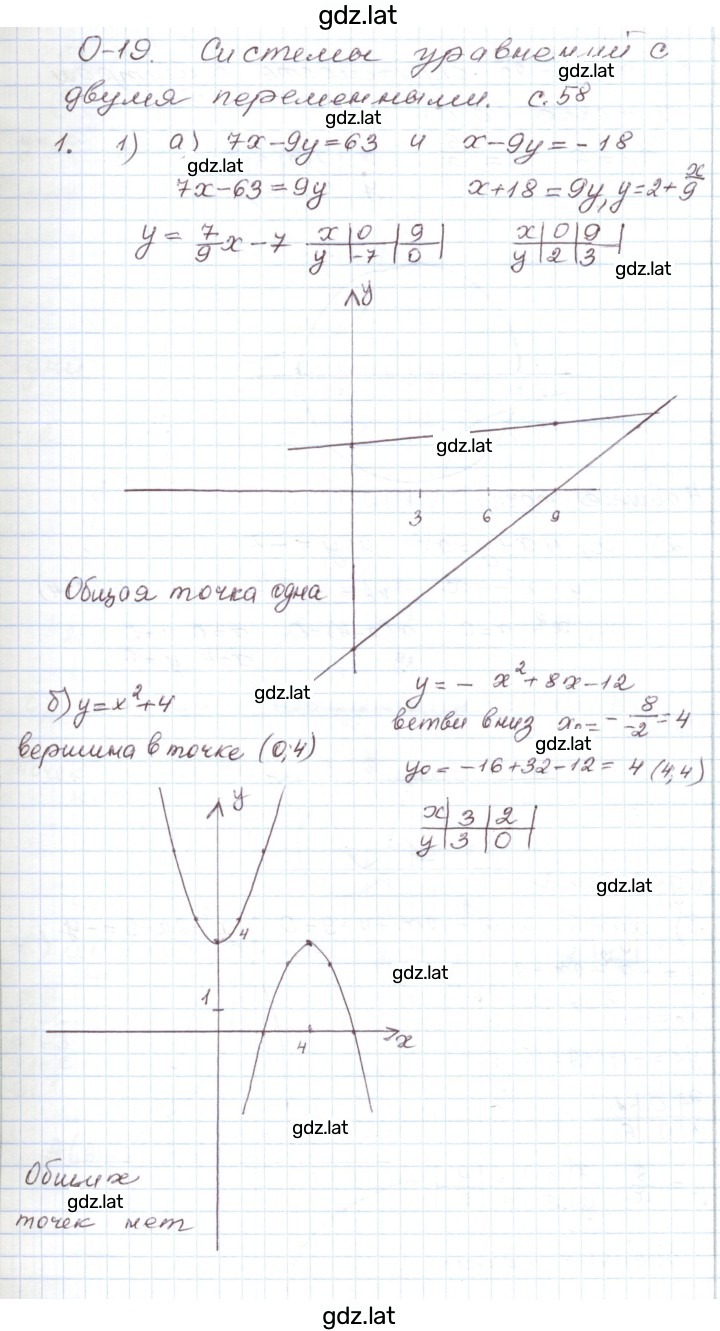 gdz.lat
О-19. Системы уравнений с
gdz.lat
двумя переменными. с.58
gdz.lat
1. 1) а) 7x-9y=63 и x-9y=-18
gdz.lat
7x-63=9y x+18=9y, y=2+x/9
y=7/9x-7 x|0|9| x|0|9|
y|-7|0| y|2|3|
gdz.lat
y
gdz.lat
3 6 9
Общая точка одна
gdz.lat
б) y=x²+4 y=-x²+8x-12
ветви вниз xп=-8/-2=4
gdz.lat
вершина в точке (0;4) y0=-16+32-12=4 (4;4)
y
x|3|2|
y|3|0|
gdz.lat
4
gdz.lat
1
4 x
gdz.lat
Общих
gdz.lat
точек нет
gdz.lat